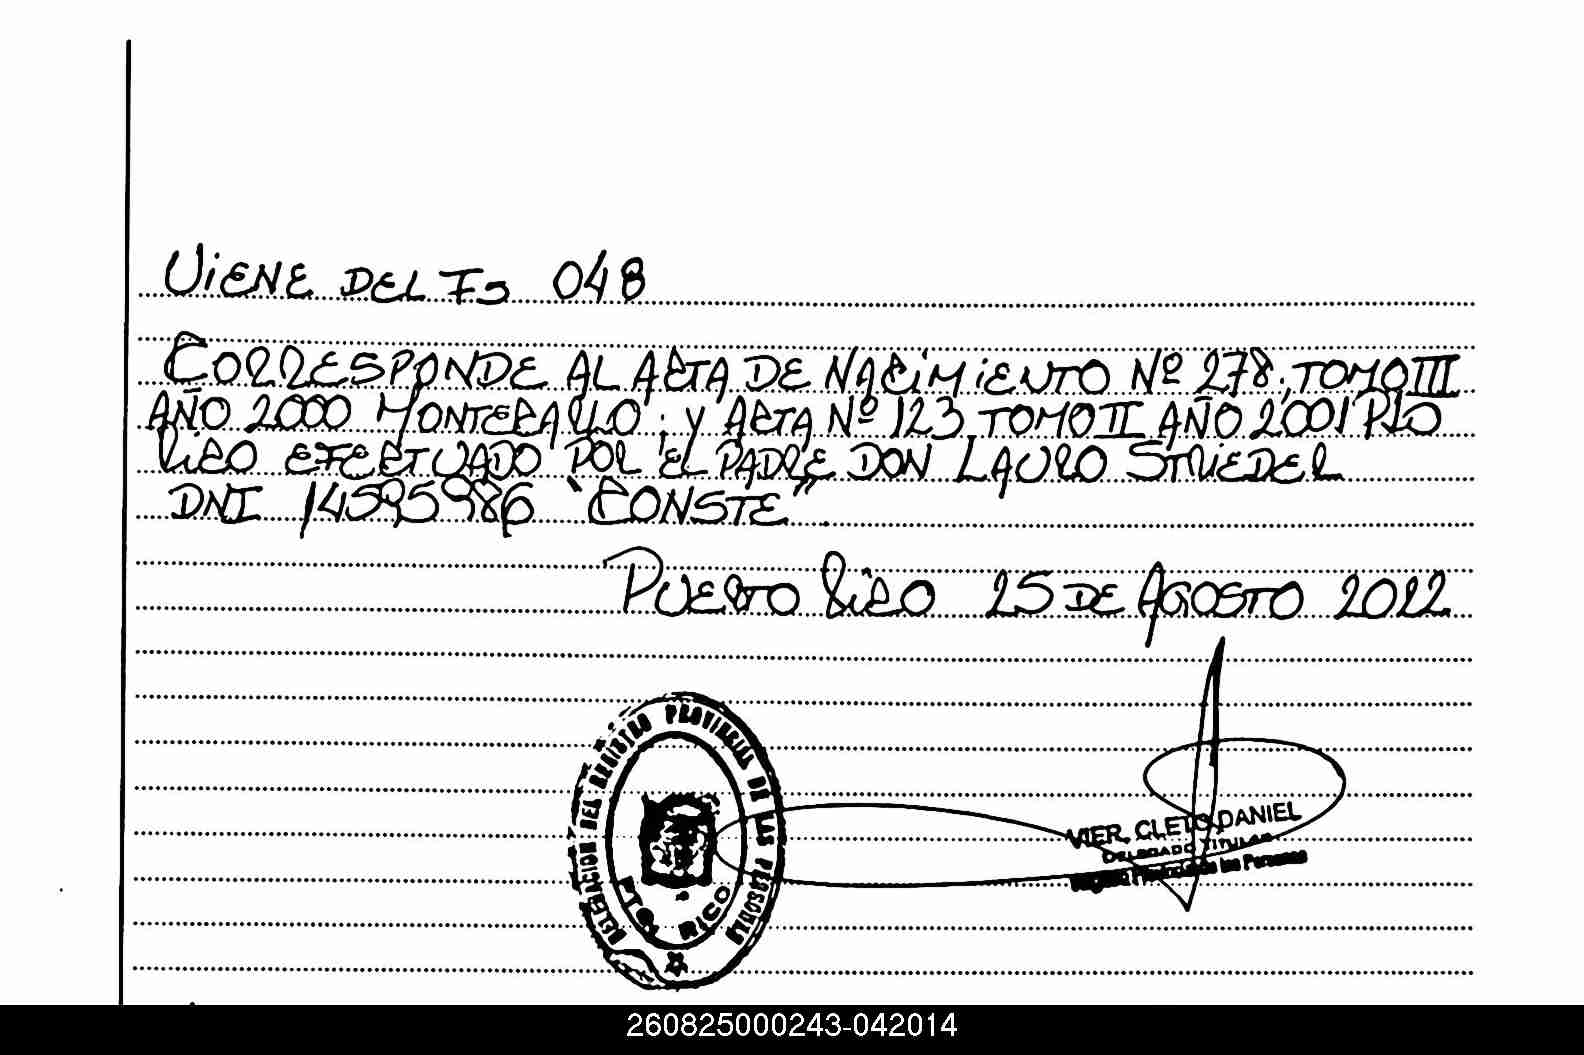 VIENE DEL Fs 048
CORRESPONDE AL ACTA DE NACIMIENTO Nº 278; TOMO III
AÑO 2000 MONTECARLO; Y ACTA Nº 123 TOMO II AÑO 2001 PTO
RICO EFECTUADO POR EL PADRE DON LAURO STRIEDER
DNI 14595986 "CONSTE".
PUERTO RICO 25 DE AGOSTO 2022
DELEGACION DEL REGISTRO PROVINCIAL DE LAS PERSONAS
PTO. RICO
VIER, CLETO DANIEL
DELEGADO TITULAR
Registro Provincial de las Personas
260825000243-042014